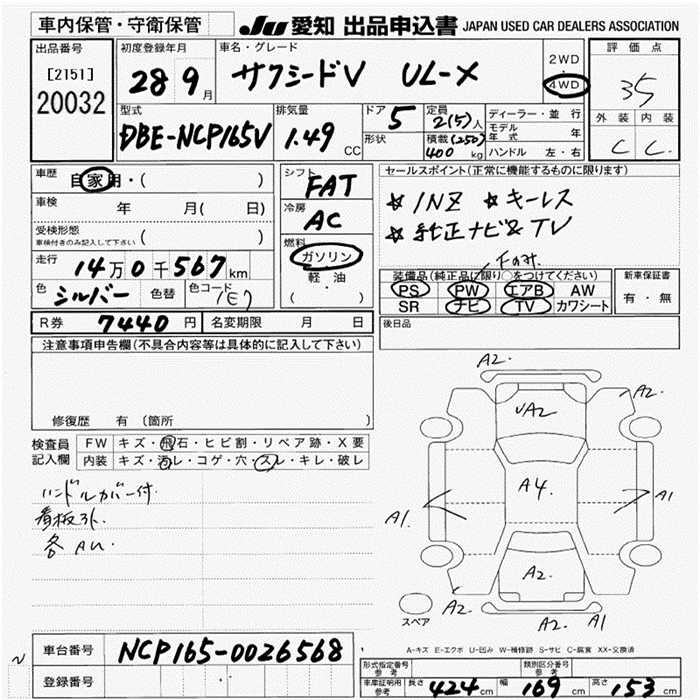 車内保管・守衛保管
JU 愛知 出品申込書 JAPAN USED CAR DEALERS ASSOCIATION
出品番号
[2151]
20032
初度登録年月
28 9月
車名・グレード
サクシードV UL-X
2WD
・
4WD
評価点
35
外装 内装
C C
型式
DBE-NCP165V
排気量
1.49 CC
ドア 5
形状
定員 2(5)人
積載 (250) 400 kg
ディーラー・並行
モデル年式 年
ハンドル 左・右
車歴 自家用・( )
車検 年 月( 日)
受検形態
車検付きのみ記入して下さい ( )
走行 14万0千567km
色 シルバー 色替 色コード 1E7
シフト FAT
冷房 AC
燃料
ガソリン
・
軽・油
( ・ )
セールスポイント(正常に機能するものに限ります)
☆ 1NZ ☆ キーレス
☆ 純正ナビ&TV
Fのみ.
装備品(純正品に限り○をつけてください)
PS PW エアB AW
SR ナビ TV カワシート
新車保証書
有・無
後日品
R券 7440円 名変期限 月 日
注意事項申告欄(不具合内容等は具体的に記入して下さい)
修復歴 有 〔箇所 〕
検査員記入欄
FW キズ・飛石・ヒビ割・リペア跡・X要
内装 キズ・汚レ・コゲ・穴・スレ・キレ・破レ
ハンドルカバー付.
看板跡.
各AU.
A2.
A2.
VA2
A4.
A1.
A1
A2.
A2.
A2.
A1
スペア
A-キズ E-エクボ U-凹み W-補修跡 S-サビ C-腐食 XX-交換済
車台番号 NCP165-0026568
登録番号
形式指定番号
参考
類別区分番号
参考
車庫証明用
参考
長さ 424cm 幅 169cm 高さ 153cm